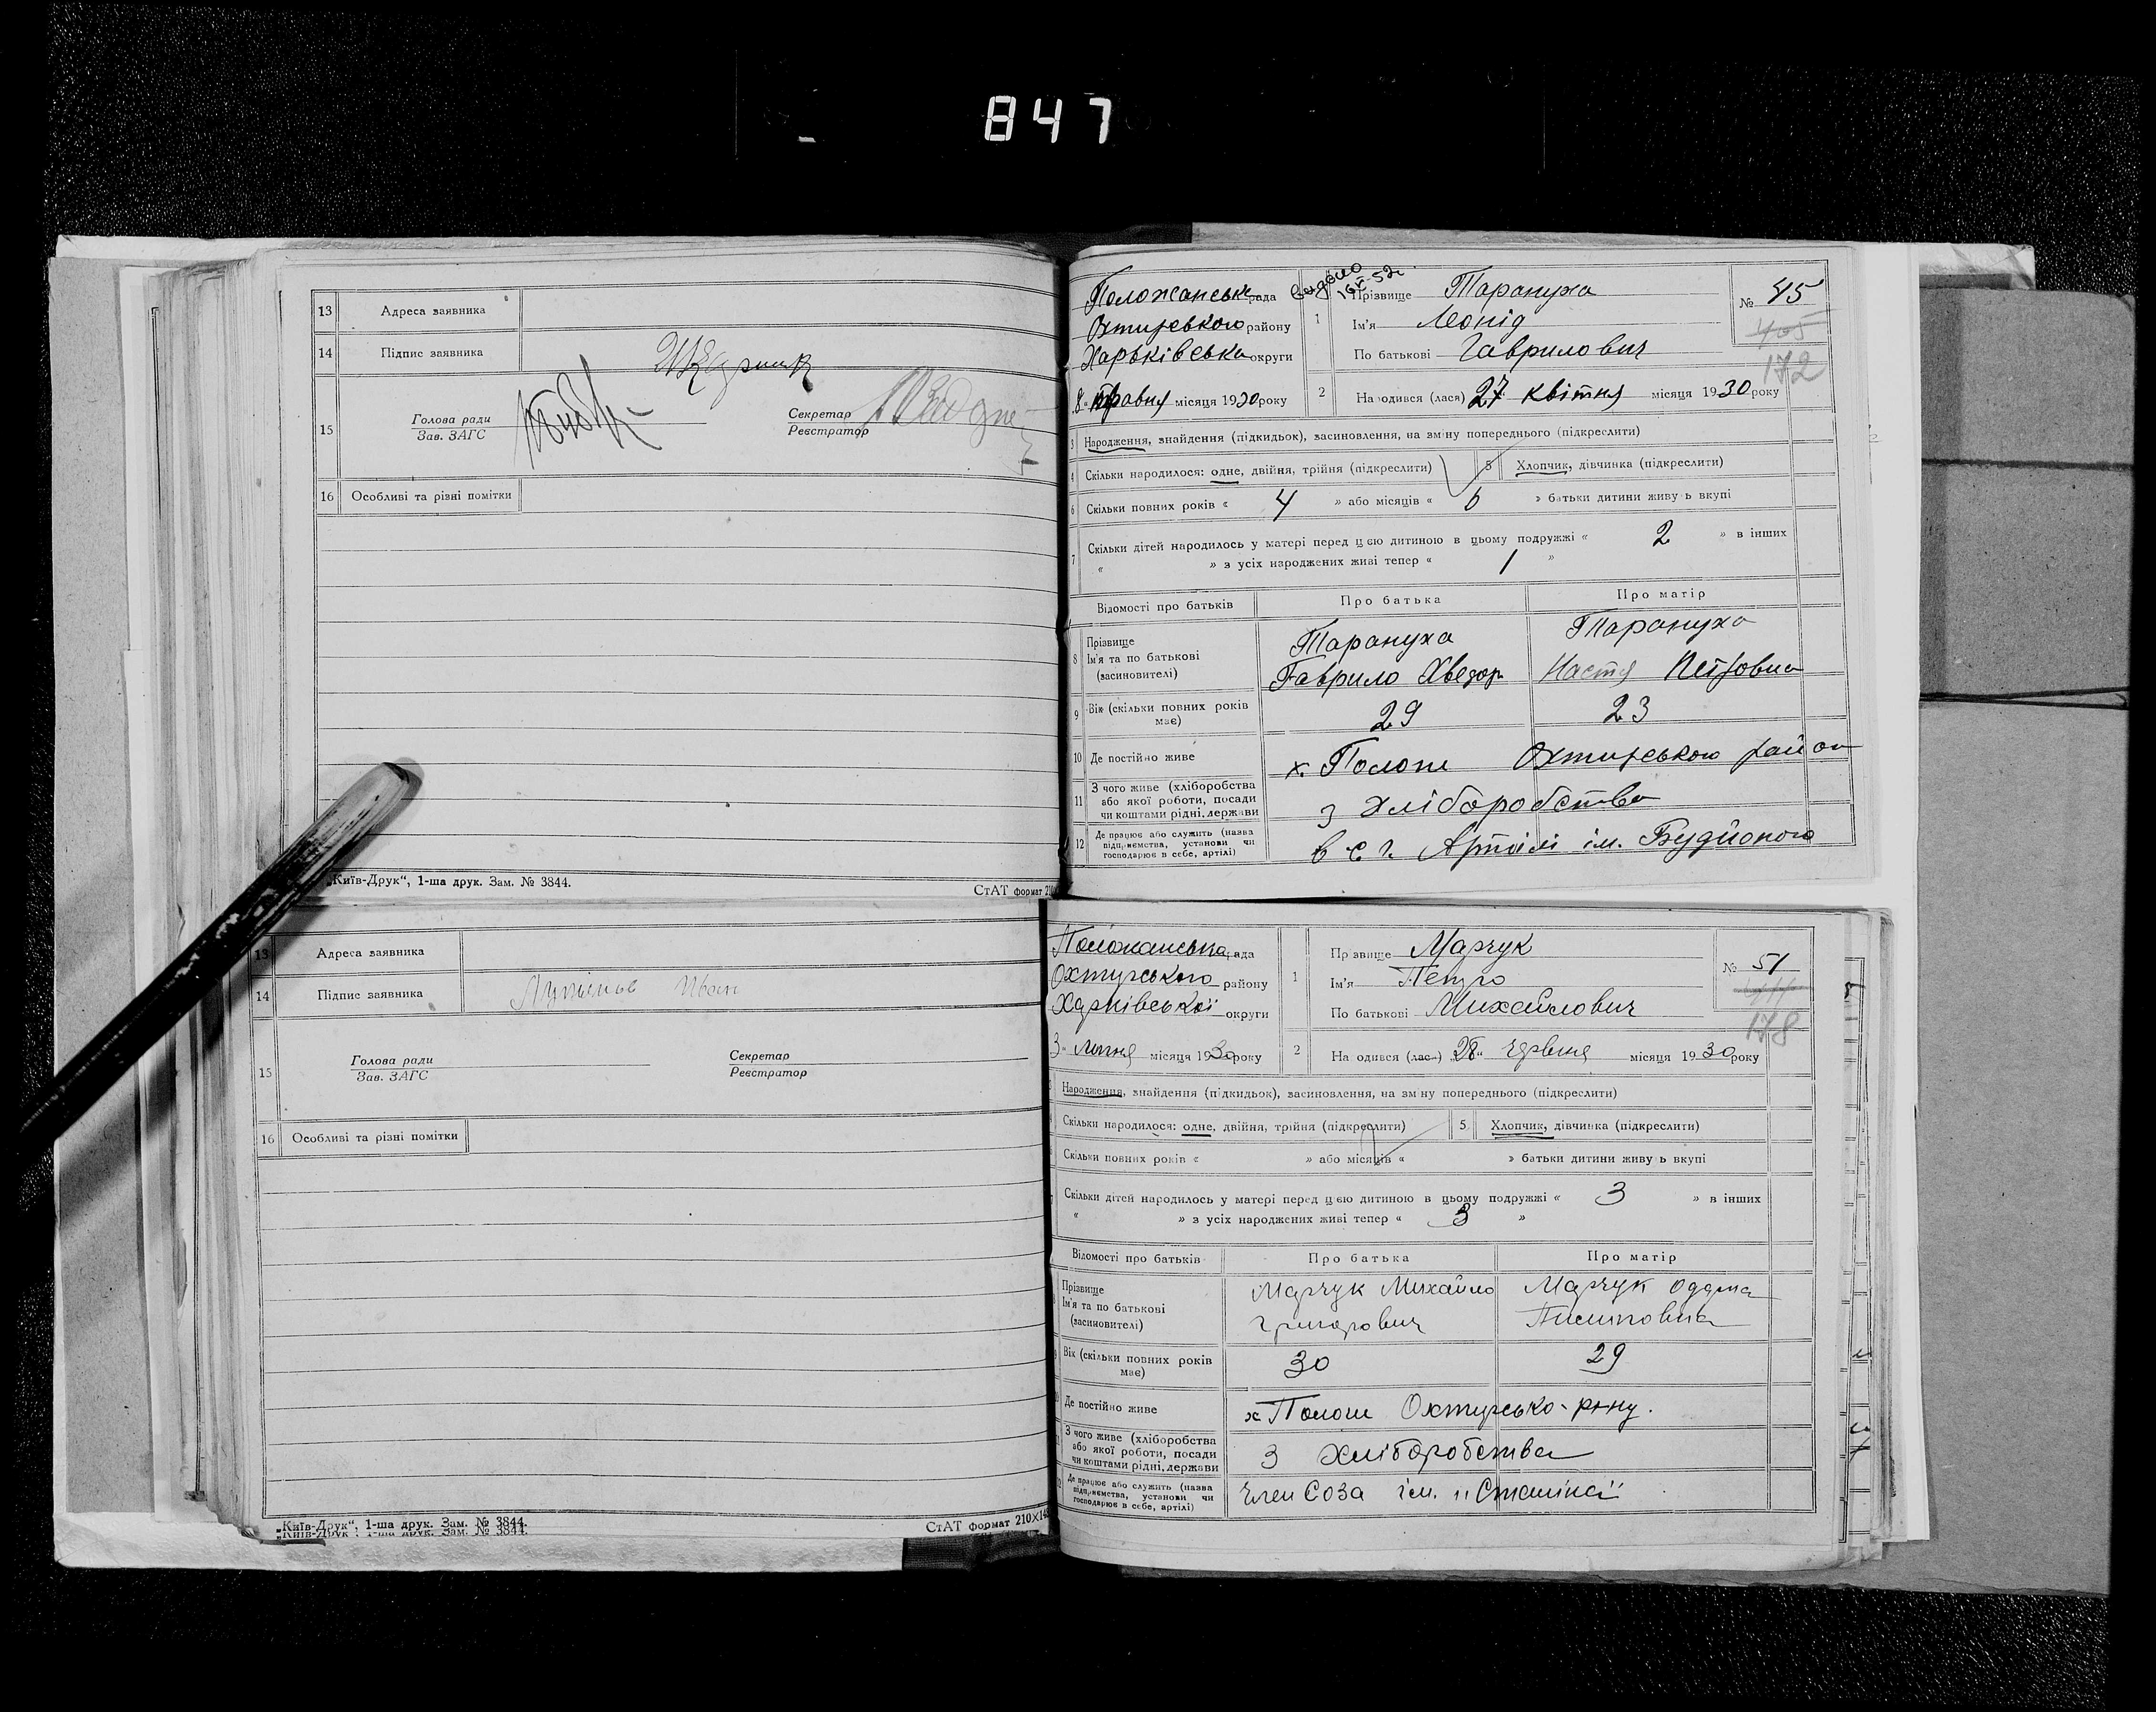 847
13 Адреса заявника
14 Підпис заявника
15 Голова ради Секретар
Зав. ЗАГС Реєстратор
16 Особливі та різні помітки
„Київ-Друк“, 1-ша друк. Зам. № 3844. СтАТ формат 210
Положанськ рада
Охтирського району
Харьківська округи
8 травня місяця 1930 року
видано
1 Прізвище Тарануха
Ім'я Леонід
По батькові Гаврилович
№ 45
172
2 Народився (лася) 27 квітня місяця 1930 року
3 Народження, знайдення (підкидьок), засиновлення, на зміну попереднього (підкреслити)
4 Скільки народилося: одне, двійня, трійня (підкреслити) 5 Хлопчик, дівчинка (підкреслити)
6 Скільки повних років « 4 » або місяців « 6 » батьки дитини живуть вкупі
7 Скільки дітей народилось у матері перед цією дитиною в цьому подружжі « 2 » в інших
« » з усіх народжених живі тепер « 1 »
Відомості про батьків Про батька Про матір
8 Прізвище Тарануха Тарануха
Ім'я та по батькові
(засиновителі) Гаврило Хведор Настя Петровна
9 Вік (скільки повних років має) 29 23
10 Де постійно живе х. Пологи Охтирського район
11 З чого живе (хліборобства
або якої роботи, посади
чи коштами рідні, держави з хліборобства
12 Де працює або служить (назва
підприємства, установи чи
господарює в себе, артілі) в с г. Артілі ім. Будйоного
13 Адреса заявника
14 Підпис заявника Іван
15 Голова ради Секретар
Зав. ЗАГС Реєстратор
16 Особливі та різні помітки
„Київ-Друк“, 1-ша друк. Зам. № 3844. СтАТ формат 210×148
Положанська рада
Охтирського району
Харківської округи
3 липня місяця 1930 року
1 Прізвище Марчук
Ім'я Петро
По батькові Михайлович
№ 51
178
2 Народився (лась) „28“ червня місяця 1930 року
Народження, знайдення (підкидьок), засиновлення, на зміну попереднього (підкреслити)
Скільки народилося: одне, двійня, трійня (підкреслити) 5 Хлопчик, дівчинка (підкреслити)
Скільки повних років « » або місяців « » батьки дитини живуть вкупі
Скільки дітей народилось у матері перед цією дитиною в цьому подружжі « 3 » в інших
« » з усіх народжених живі тепер « 3 »
Відомості про батьків Про батька Про матір
Прізвище Марчук Михайло Марчук
Ім'я та по батькові
(засиновителі) Григорович
Вік (скільки повних років має) 30 29
Де постійно живе х Пологи Охтирсько- р-ну.
З чого живе (хліборобства
або якої роботи, посади
чи коштами рідні, держави З Хліборобства
Де працює або служить (назва
підприємства, установи чи
господарює в себе, артілі) член Соза ім. „Сталіна“